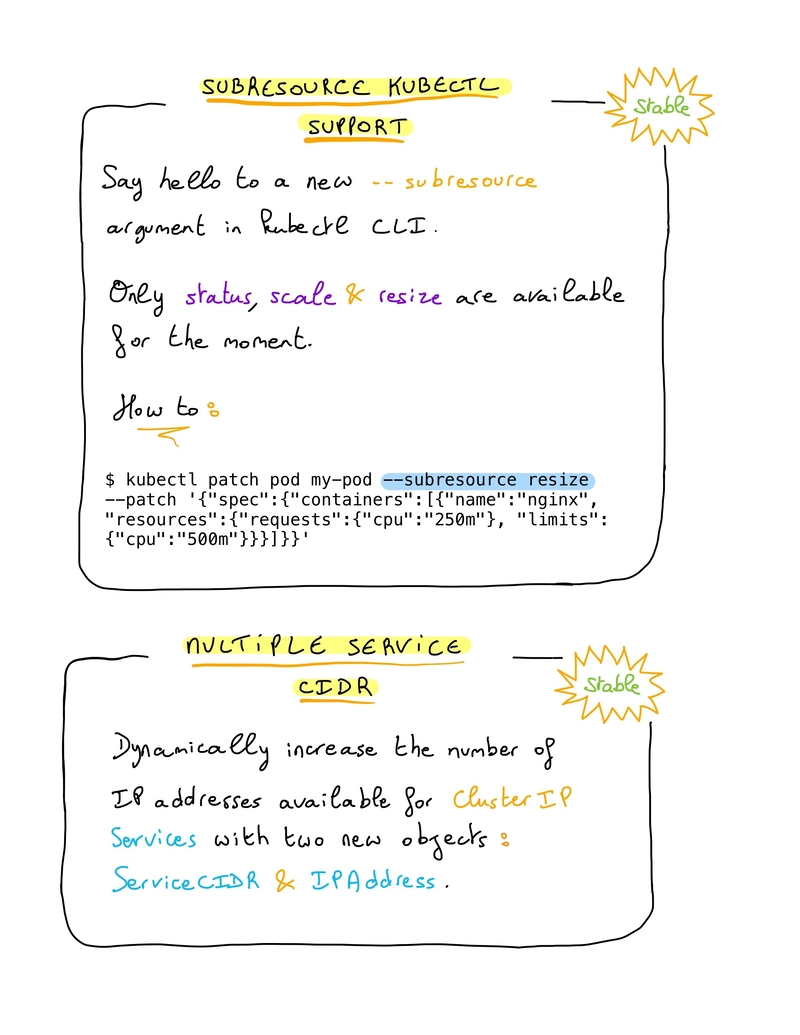 SUBRESOURCE KUBECTL
SUPPORT
Stable
Say hello to a new --subresource
argument in kubectl CLI.
Only status, scale & resize are available
for the moment.
How to :
$ kubectl patch pod my-pod --subresource resize
--patch '{"spec":{"containers":[{"name":"nginx",
"resources":{"requests":{"cpu":"250m"}, "limits":
{"cpu":"500m"}}}]}}'
MULTIPLE SERVICE
CIDR
Stable
Dynamically increase the number of
IP addresses available for ClusterIP
Services with two new objects :
ServiceCIDR & IPAddress.